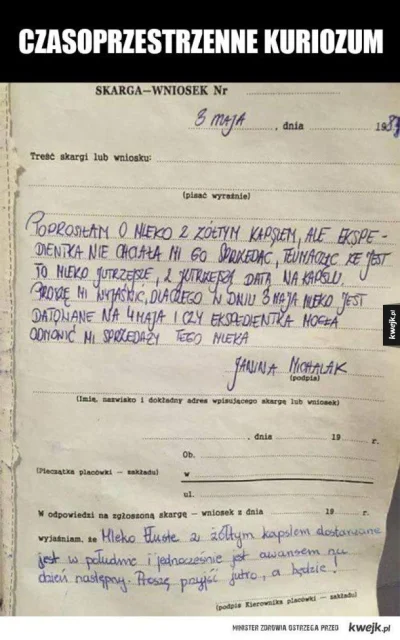 CZASOPRZESTRZENNE KURIOZUM
SKARGA—WNIOSEK Nr
3 MAJA , dnia 198
Treść skargi lub wniosku:
(pisać wyraźnie)
POPROSIŁAM O MLEKO Z ŻÓŁTYM KAPSLEM, ALE EKSPE-
DIENTKA NIE CHCIAŁA MI GO SPRZEDAĆ, TŁUMACZĄC ŻE JEST
TO MLEKO JUTRZEJSZE, Z JUTRZEJSZĄ DATĄ NA KAPSLU.
PROSZĘ MI WYJAŚNIĆ, DLACZEGO W DNIU 3 MAJA MLEKO JEST
DATOWANE NA 4 MAJA I CZY EKSPEDIENTKA MOGŁA
ODMÓWIĆ MI SPRZEDAŻY TEGO MLEKA
JANINA MICHALAK
(podpis)
(Imię, nazwisko i dokładny adres wpisującego skargę lub wniosek)
, dnia 19 r.
Ob.
(Pieczątka placówki — zakładu) w
ul.
W odpowiedzi na zgłoszoną skargę — wniosek z dnia 19 r.
wyjaśniam, że Mleko tłuste z żółtym kapslem dostarczane
jest w południe i jednocześnie jest awansem na
dzień następny. Proszę przyjść jutro, a będzie!
(podpis Kierownika placówki — zakładu)
kwejk.pl
MINISTER ZDROWIA OSTRZEGA PRZED kwejk.pl